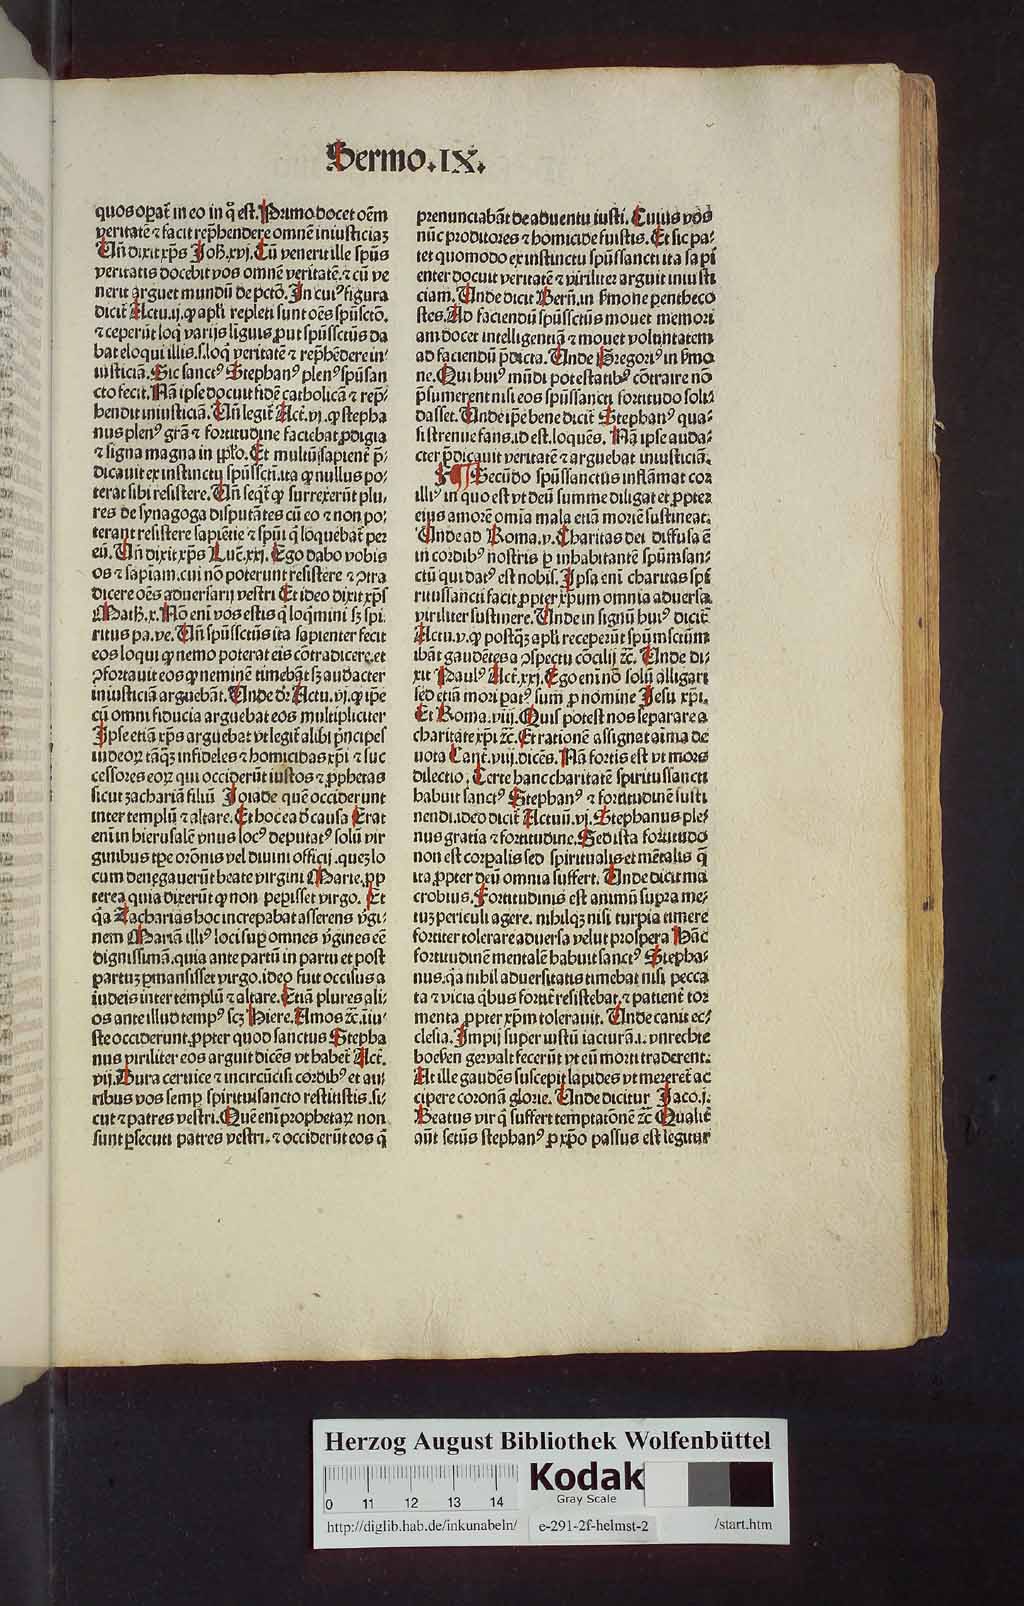 Sermo.IX.
quos oꝑat̄ in eo in q̄ est. Primo docet oēm
veritatē ⁊ facit rep̄hendere omnē iniusticiaꝫ
Un̄ dixit xp̄s Joh̄.xvj. Cū venerit ille spūs
veritatis docebit vos omnē veritatē.⁊ cū ve
nerit arguet mundū de pctō. In cuiꝰ figura
dicit̄ Actu.ij.ꝙ apl̄i repleti sunt oēs spūsctō.
⁊ ceperūt loq̄ varijs liguis ꝓut spūssctūs da
bat eloqui illis.s.loq̄ veritatē ⁊ rep̄hēdere in⸗
iusticiā. Sic sanctꝰ Stephanꝰ plenꝰ spūsan
cto fecit. Nā ipse docuit fidē catholicā ⁊ rep̄⸗
hendit iniusticiā. Un̄ legit̄ Act̄.vj.ꝙ stepha
nus plenꝰ grā ⁊ fortitudine faciebat ꝓdigia
⁊ signa magna in pp̄lo. Et multū sapient̄ p̄⸗
dicauit ex instinctu spūsscti.ita ꝙ nullus po⸗
terat sibi resistere. Un̄ seqt̄ ꝙ surrexerūt plu⸗
res de synagoga disputātes cū eo ⁊ non po⸗
terant resistere sapiētie ⁊ spūi q̄ loquebat̄ per
eū. Un̄ dixit xp̄s Luc̄.xxj. Ego dabo vobis
os ⁊ sapiam̄.cui nō poterunt resistere ⁊ ꝯtra
dicere oēs aduersarij vestri Et ideo dixit xp̄s
Math̄.x. Nō eni vos estis q̄ loqm̄ini sꝫ spi.
ritus pa.ve. Un̄ spūssctūs ita sapienter fecit
eos loqui ꝙ nemo poterat eis cōtradicere.et
ꝯfortauit eos ꝙ neminē timebāt sꝫ audacter
iniusticiā arguebāt. Unde dr̄ Actu.vj.ꝙ ip̄e
cū omni fiducia arguebat eos multipliciter
Ipse etiā xp̄s arguebat vt legit̄ alibi p̄ncipes
iudeoꝝ tāꝗꝫ infideles ⁊ homicidas xp̄i ⁊ suc
cessores eoꝝ qui occiderūt iustos ⁊ ꝓphetas
sicut zachariā filiū Joiade quē occiderunt
inter templū ⁊ altare. Et hoc ea d̄ causa Erat
enī in hierusalē vnus locꝰ deputatꝰ solū vir
ginibus tp̄e orōnis vel diuini officij.queꝫ lo
cum denegauerūt beate virgini Marie.ꝓp
terea quia dixerūt ꝙ non peperisset virgo. Et
q̄a Zacharias hoc increpabat asserens v̄gi⸗
nem Mariā illiꝰ loci suꝑ omnes v̄gines eē
dignissimā.quia ante partū in partu et post
partuꝫ ꝑmansisset virgo.ideo fuit occisus a
iudeis inter templū ⁊ altare. Etiā plures ali⸗
os ante illud tempꝰ scꝫ Hiere. Amos ⁊c̄.iniu⸗
ste occiderunt.ꝓpter quod sanctus Stepha
nus viriliter eos arguit dicēs vt habet̄ Act̄.
vij. Dura ceruice ⁊ incircūcisi cordibꝰ et au⸗
ribus vos semꝑ spirituisancto restitistis.si⸗
cut ⁊ patres vestri. Quē eni ꝓphetaꝝ non
sunt ꝑsecuti patres vestri.⁊ occiderūt eos q̄
prenunciabāt de aduentu iusti. Cuius vos
nūc proditores ⁊ homicide fuistis. Et sic pa⸗
tet quomodo ex instinctu spūssancti ita sapi
enter docuit veritatē ⁊ viriliter arguit iniusti
ciam. Unde dicit Bern̄.in s̄mone penthe co
stes. Ad faciendū spūssctūs mouet memori
am docet intelligentiā ⁊ mouet voluntatem
ad faciendū p̄dicta. Unde Gregoriꝰ in s̄mo
ne. Qui huiꝰ mūdi potestatibꝰ cōtraire nō
p̄sumerent nisi eos spūssancti fortitudo soli⸗
dasset. Unde ip̄e bene dicit̄ Stephanꝰ qua⸗
si strenue fans.id est.loquēs. Nā ipse auda⸗
cter p̄dicauit veritatē ⁊ arguebat iniusticiā.
¶ Secūdo spūssanctus inflāmat cor
illiꝰ in quo est vt deū summe diligat et ꝓpter
eius amorē omīa mala etiā mortē sustineat.
Unde ad Roma.v. Charitas dei diffusa ē
in cordibꝰ nostris ꝑ inhabitantē spūmsan⸗
ctū qui datꝰ est nobis. Ipsa enī charitas spi
ritussancti facit ꝓpter xp̄um omnia aduersa
viriliter sustinere. Unde in signū huiꝰ dicit̄
Actu.v.ꝙ postꝗꝫ apl̄i receperūt spūmsctūm
ibāt gaudētes a ꝯspectu cōcilij ⁊c̄. Unde di⸗
xit Paulꝰ Act̄.xxj. Ego eni nō solū alligari
sed etiā mori patꝰ sum ꝓ nomine Jesu xp̄i.
Et Roma.viij. Quis potest nos separare a
charitate xp̄i ⁊c̄. Et rationē assignat aīma de
uota Cant̄.viij.dicēs. Nā fortis est vt mors
dilectio. Certe hanc charitatē spiritussancti
habuit sanctꝰ Stephanꝰ ⁊ fortitudinē susti
nendi.ideo dicit̄ Actuū.vj. Stephanus ple⸗
nus gratia ⁊ fortitudine. Sed ista fortitudo
non est corꝑalis sed spiritualis et mētalis q̄
ita ꝓpter deū omnia suffert. Unde dicit ma
crobius. Fortitudinis est animū supra me⸗
tuꝫ periculi agere. nihilqꝫ nisi turpia timere
fortiter tolerare aduersa velut prospera Hāc
fortitudinē mentalē habuit sanctꝰ Stepha⸗
nus.q̄a nihil aduersitatis timebat nisi pecca
ta ⁊ vicia q̄bus fortit̄ resistebat.⁊ patient̄ tor
menta ꝓpter xp̄m tolerauit. Unde canit ec⸗
clesia. Impij super iustū iacturā.i. vnrechte
boesen gewalt fecerūt vt eū morti traderent.
At ille gaudēs suscepit lapides vt mereret̄ ac
cipere coronā glorie. Unde dicitur Jaco.j.
Beatus vir q̄ suffert temptatōnē ⁊c̄ Qualit̄
aūt sctūs stephanꝰ ꝓ xp̄o passus est legitur
Herzog August Bibliothek Wolfenbüttel
0 11 12 13 14
Kodak
Gray Scale
http://diglib.hab.de/inkunabeln/ e-291-2f-helmst-2 /start.htm